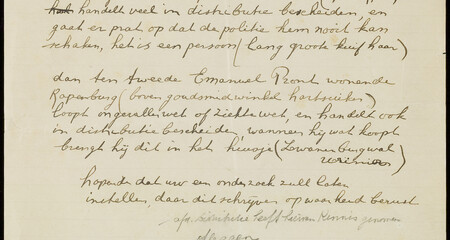 handelt veel in distributie bescheiden, en
gaat er prat op dat de politie hem nooit kan
schaken, het is een persoon (lang groot kuif haar)
dan ten tweede Emanuel Pront wonende
Rapenburg (boven goudsmidwinkel
loopt ongevallenwet of Ziektewet, en handelt ook
in distributie bescheiden wanneer hij wat koopt
brengt hij dit in het huisje
hopende dat uw een onderzoek zult laten
instellen, daar dit schrijven op waarheid berust
distributie heeft hiervan kennis genomen